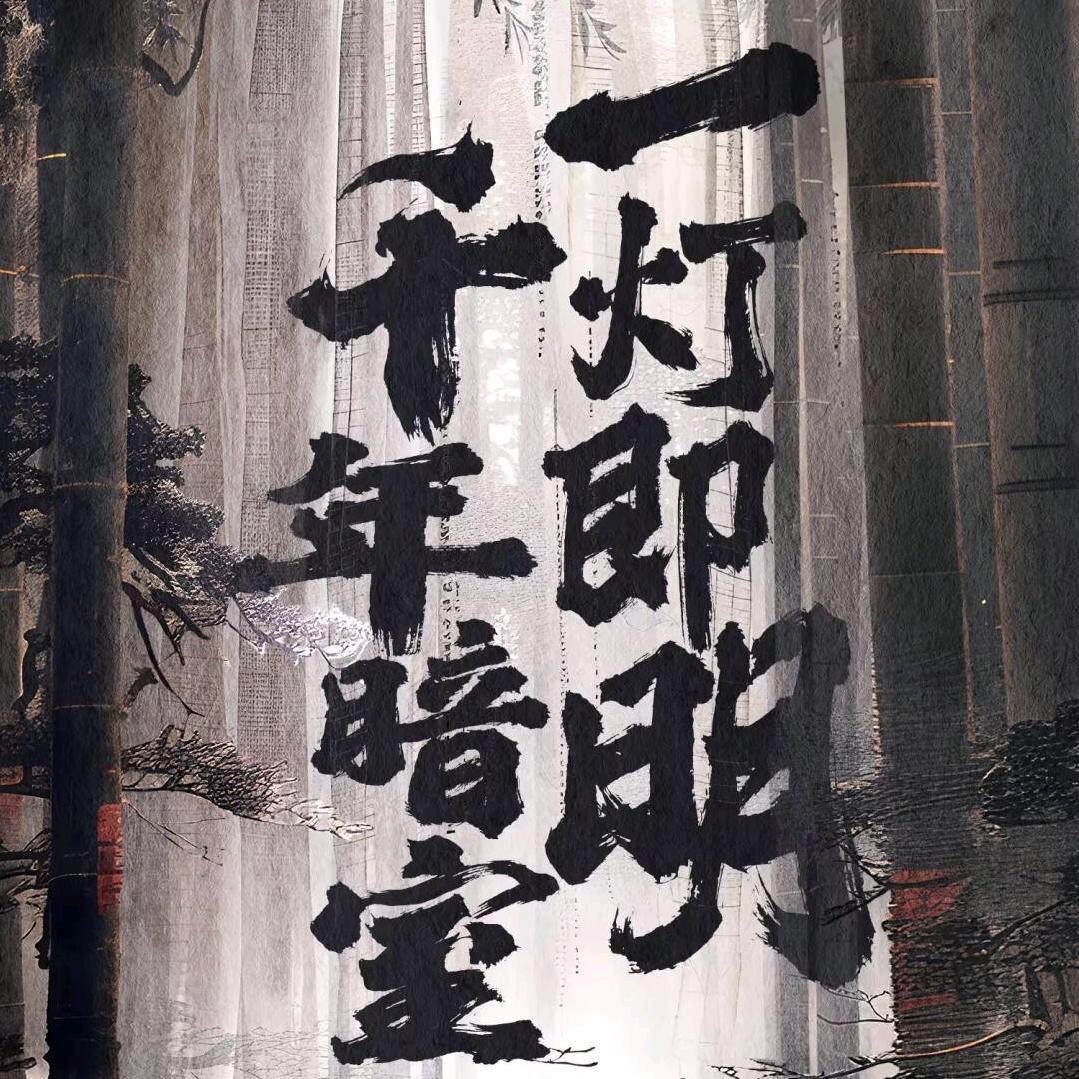 一灯即明
千年暗室